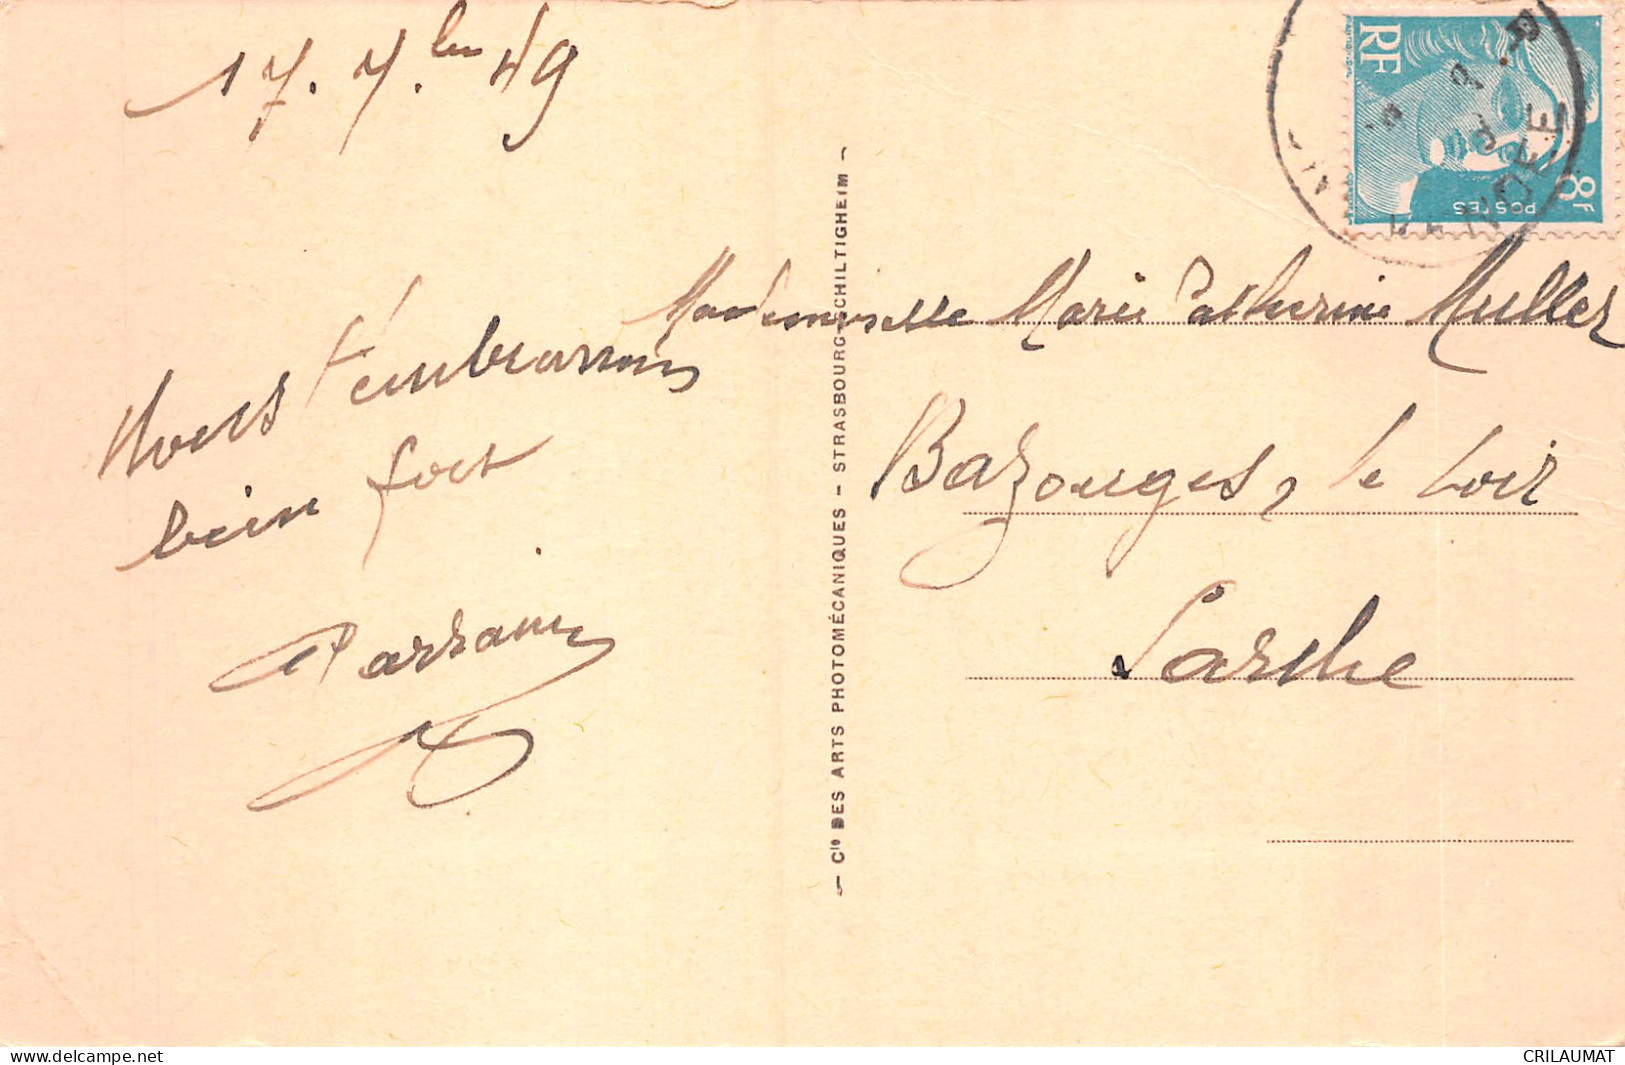 17. 7.bre 49
Nous t'embrassons
bien fort
Parrain
— Cie DES ARTS PHOTOMÉCANIQUES - STRASBOURG-SCHILTIGHEIM —
RF
8F
POSTES
VENDEE
Mademoiselle Marie Catherine Muller
Bazouges, le Loir
Sarthe
delcampe.net
CRILAUMAT